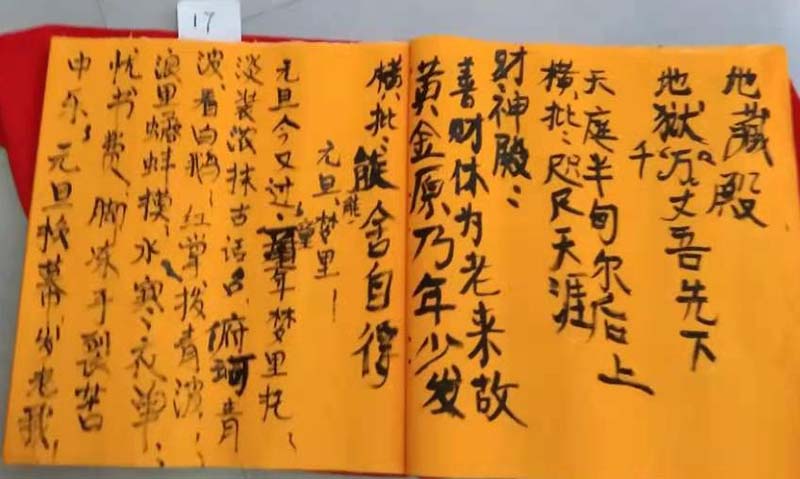 17
地藏殿
地獄万丈吾先下
千
天庭半旬尔后上
横批：咫尺天涯
财神殿：
善财休为老来故
黄金原乃年少发
横批：能舍自得
能
元旦、梦里！
元旦今又过：童年梦里托、
童
淡装浓抹古话台，俯珂青
波、看白鹅！红掌拨青波！
浪里蟮蚌摸、水寒、衣单、
忧书费、脚冻手裂苦
中乐，元旦